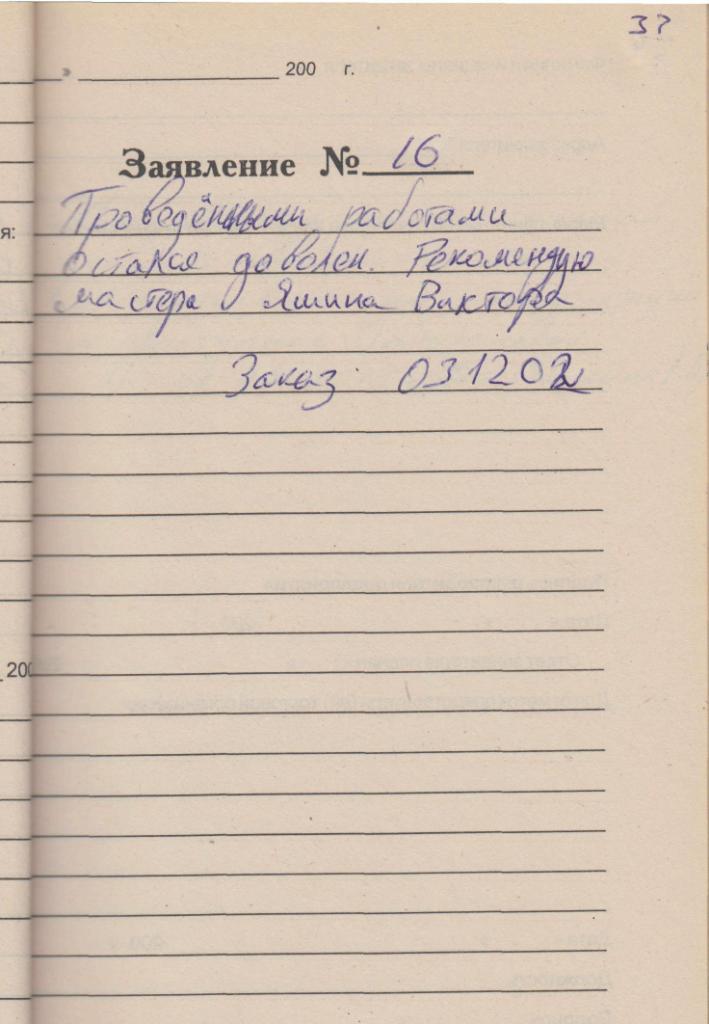 37
200 г.
Заявление № 16
Проведёнными работами
остался доволен. Рекомендую
мастера Яшина Виктора
Заказ 031202
я:
200